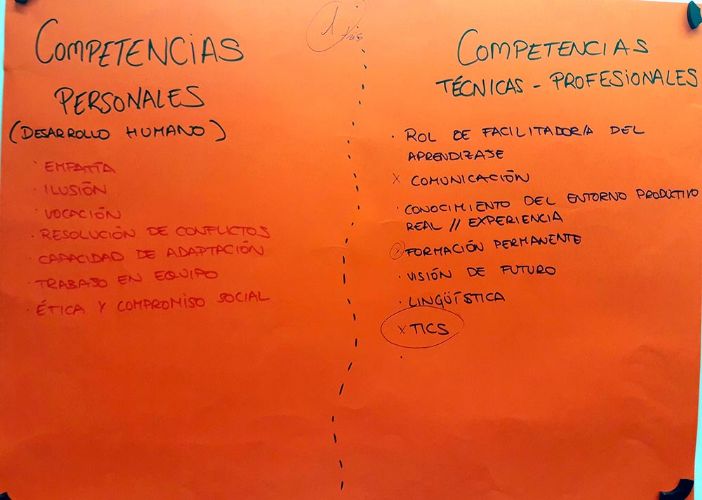 COMPETENCIAS
PERSONALES
(DESARROLLO HUMANO)
· EMPATÍA
· ILUSIÓN
· VOCACIÓN
· RESOLUCIÓN DE CONFLICTOS
· CAPACIDAD DE ADAPTACIÓN
· TRABAJO EN EQUIPO
· ÉTICA Y COMPROMISO SOCIAL
COMPETENCIAS
TÉCNICAS - PROFESIONALES
· ROL DE FACILITADOR/A DEL
APRENDIZAJE
x COMUNICACIÓN
· CONOCIMIENTO DEL ENTORNO PRODUCTIVO
REAL // EXPERIENCIA
· FORMACIÓN PERMANENTE
· VISIÓN DE FUTURO
· LINGÜÍSTICA
x TICS